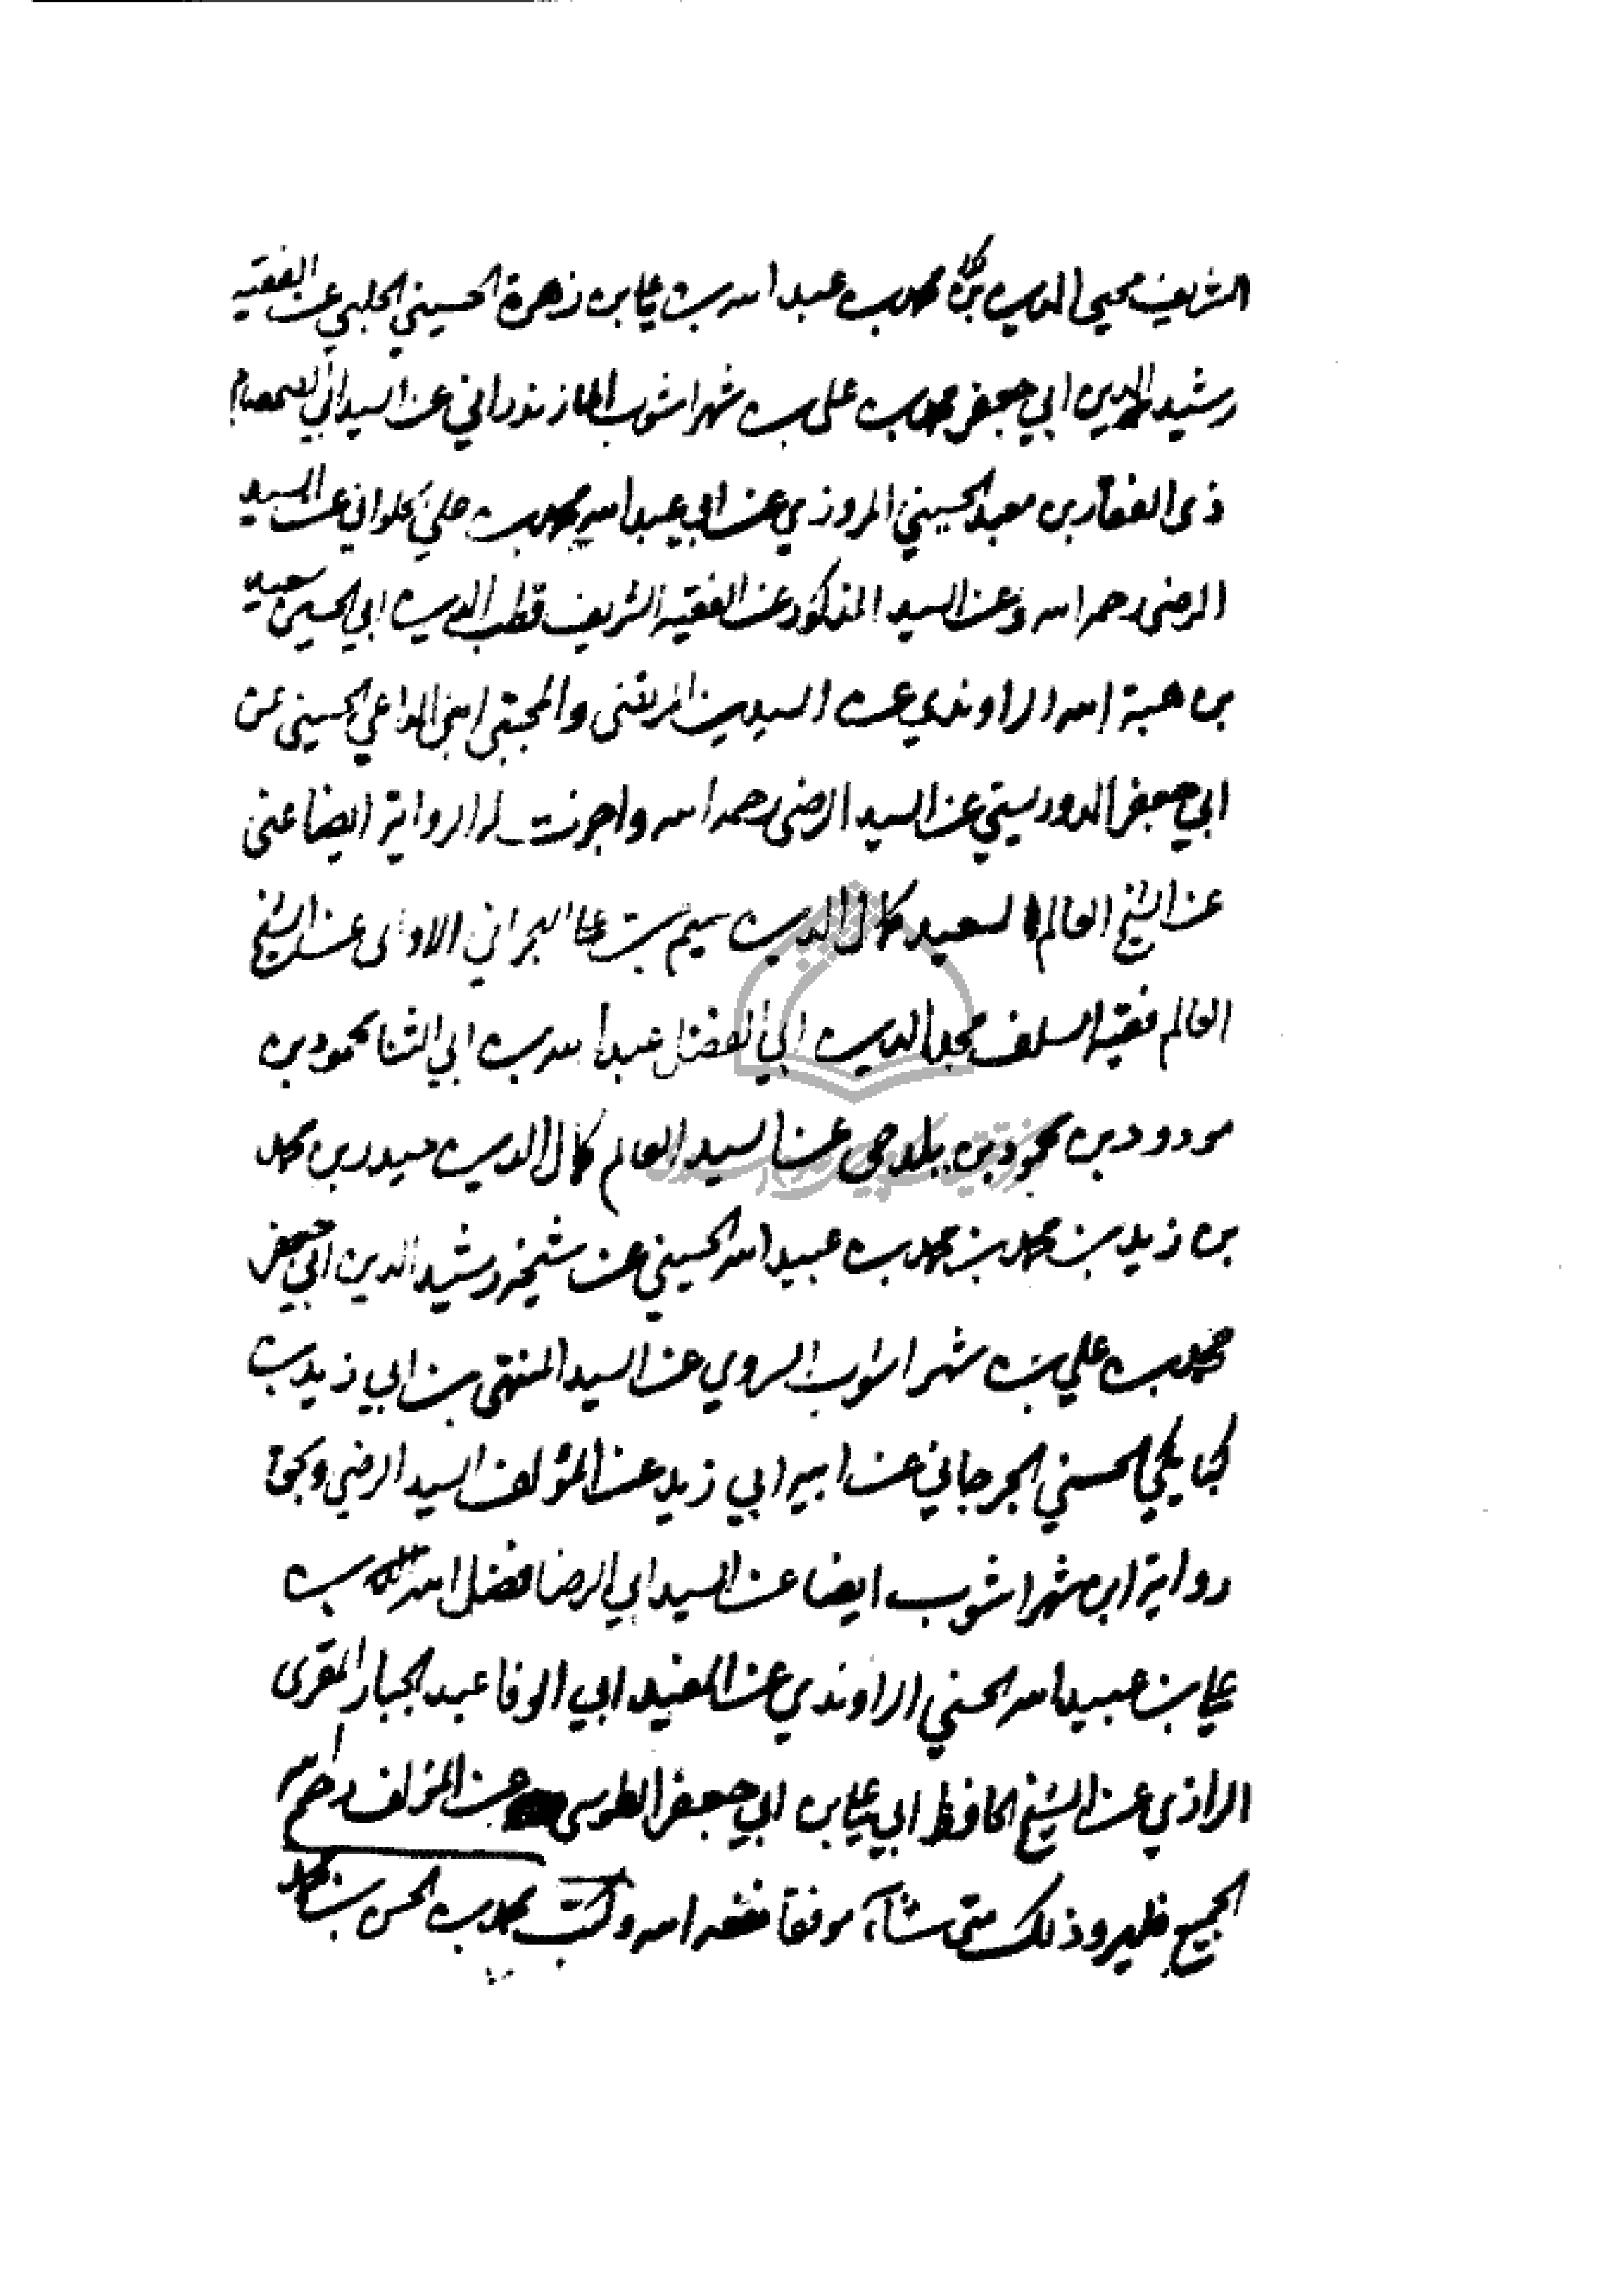 الشريف محيي الدين محمد بن عبد الله بن علي بن زهرة الحسيني الحلبي عن الفقيه
رشيد الدين ابي جعفر محمد بن علي بن شهراشوب المازندراني عن السيد ابي الصمصام
ذى الفقار بن معبد الحسيني المروزي عن ابي عبد الله محمد بن علي الحلواني عن السيد
الرضى رحمه الله وعن السيد المذكور عن الفقيه الشريف قطب الدين ابي الحسين سعيد
بن هبة الله الراوندي عن السيدين المرتضى والمجتبى ابني الداعي الحسيني عن
ابي جعفر الدوريستي عن السيد الرضى رحمه الله واجزت له الرواية ايضا عني
عن الشيخ العالم السعيد كمال الدين ميثم بن علي البحراني الاوالى عن الشيخ
العالم فقيه السلف مجد الدين ابي الفضل عبد الله بن ابي الثنا محمود بن
مودود بن محمود بن بلدجى عن السيد العالم كمال الدين حيدر بن محمد
بن زيد بن محمد بن محمد بن عبيد الله الحسيني عن شيخه رشيد الدين ابي جعفر
محمد بن علي بن شهراشوب السروي عن السيد المنتهى بن ابي زيد بن
كيابكي الحسني الجرجاني عن ابيه ابي زيد عن المؤلف السيد الرضي وبحق
رواية ابن شهراشوب ايضا عن السيد ابي الرضا فضل الله بن
علي بن عبيد الله الحسني الراوندي عن المفيد ابي الوفا عبد الجبار المقرى
الرازي عن الشيخ الحافظ ابي علي بن ابي جعفر الطوسى عن المؤلف رحم الله
الجميع فليرو ذلك متى شآء موفقا نفعه الله وكتب محمد بن الحسن بن محمد